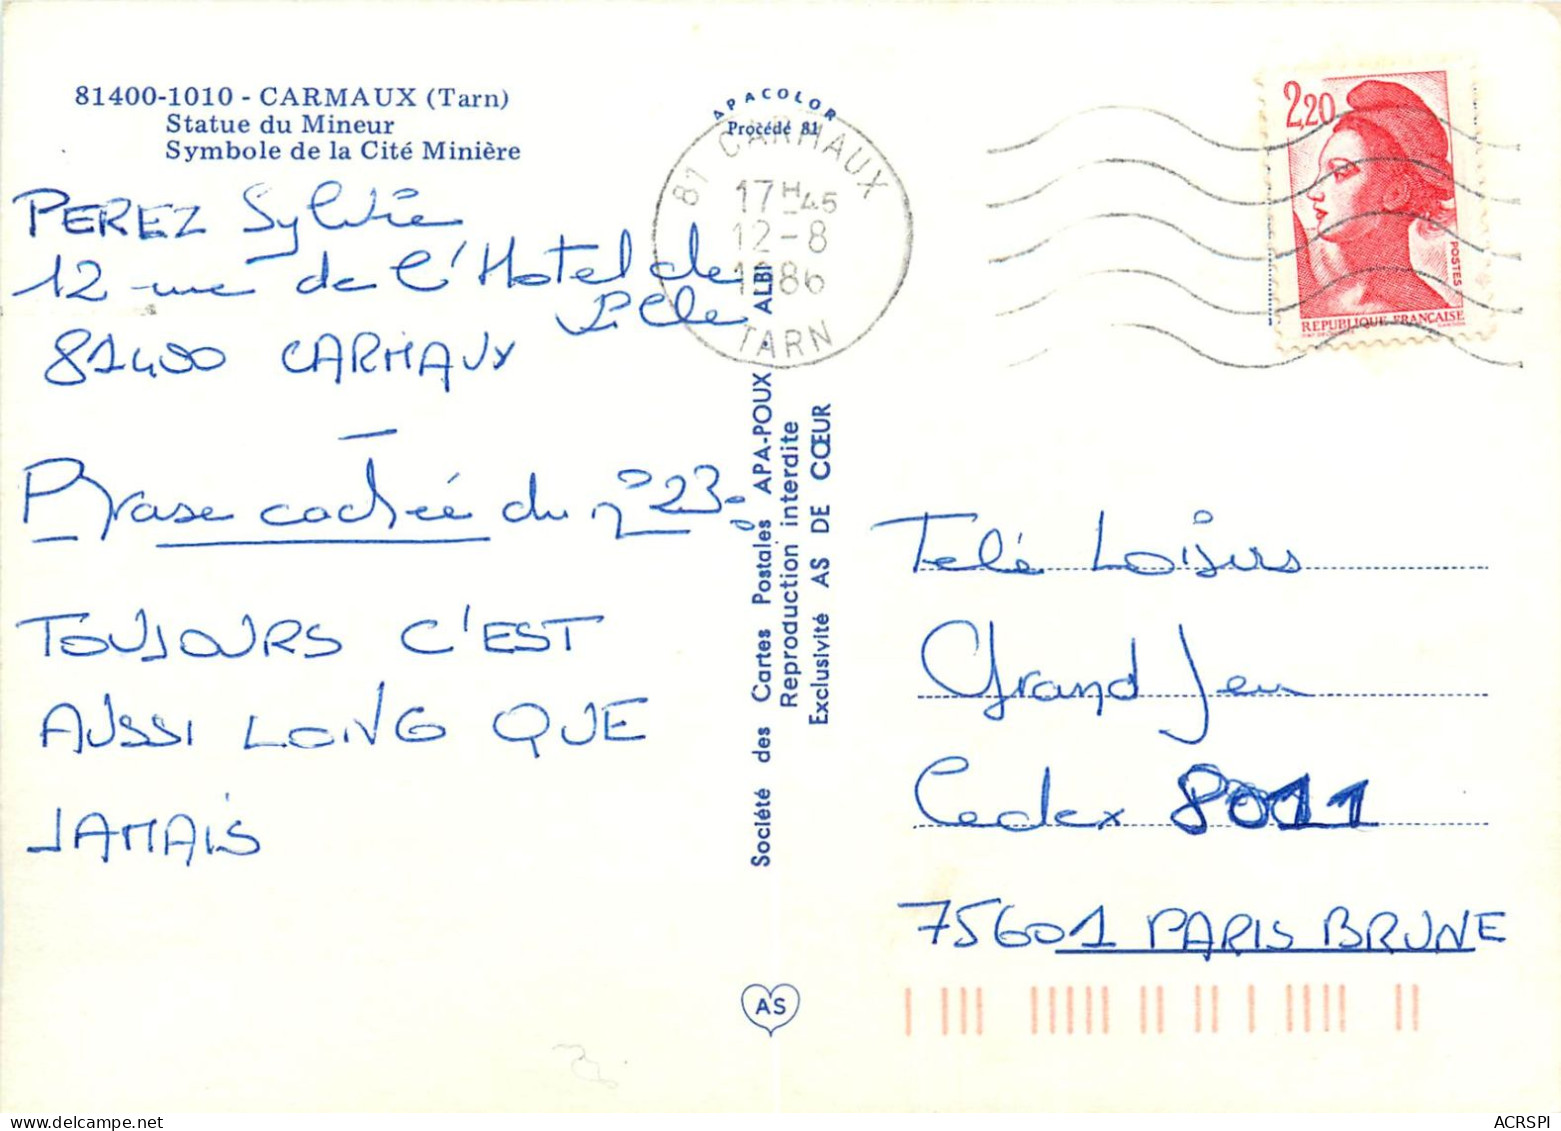 81400-1010 - CARMAUX (Tarn)
Statue du Mineur
Symbole de la Cité Minière
PEREZ Sylvie
12 rue de l'Hotel de
Ville
81400 CARMAUX
Phrase cachée du n° 23:
TOUJOURS C'EST
AUSSI LOING QUE
JAMAIS
APACOLOR
Procédé 81
81 CARMAUX
17H45
12-8
1986
TARN
Société des Cartes Postales APA-POUX - ALBI
Reproduction interdite
Exclusivité AS DE CŒUR
AS
2,20
POSTES
REPUBLIQUE FRANÇAISE
Telé Loisirs
Grand Jeu
Cedex 8011
75601 PARIS BRUNE
ACRSPI